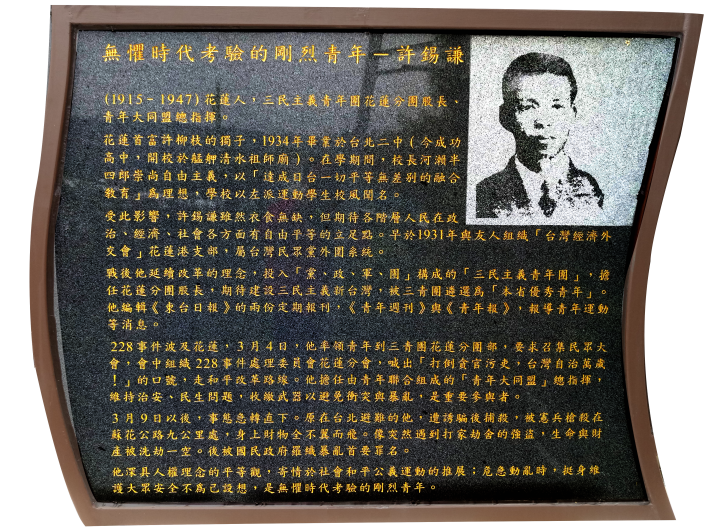 無懼時代考驗的剛烈青年—許錫謙
(1915-1947)花蓮人，三民主義青年團花蓮分團股長、
青年大同盟總指揮。
花蓮首富許柳枝的獨子，1934年畢業於台北二中（今成功
高中，開校於艋舺清水祖師廟）。在學期間，校長河瀨半
四郎崇尚自由主義，以「達成日台一切平等無差別的融合
教育」為理想，學校以左派運動學生校風聞名。
受此影響，許錫謙雖然衣食無缺，但期待各階層人民在政
治、經濟、社會各方面有自由平等的立足點。早於1931年與友人組織「台灣經濟外
交會」花蓮港支部，屬台灣民眾黨外圍系統。
戰後他延續改革的理念，投入「黨、政、軍、團」構成的「三民主義青年團」，擔
任花蓮分團股長，期待建設三民主義新台灣，被三青團遴選為「本省優秀青年」。
他編輯《東台日報》的兩份定期報刊，《青年週刊》與《青年報》，報導青年運動
等消息。
228事件波及花蓮，3月4日，他率領青年到三青團花蓮分團部，要求召集民眾大
會，會中組織228事件處理委員會花蓮分會，喊出「打倒貪官污吏，台灣自治萬歲
！」的口號，走和平改革路線。他擔任由青年聯合組成的「青年大同盟」總指揮，
維持治安、民生問題，收繳武器以避免衝突與暴亂，是重要參與者。
3月9日以後，事態急轉直下。原在台北避難的他，遭誘騙後捕殺，被憲兵槍殺在
蘇花公路九公里處，身上財物全不翼而飛。像突然遇到打家劫舍的強盜，生命與財
產被洗劫一空。後被國民政府羅織暴亂首要罪名。
他深具人權理念的平等觀，寄情於社會和平公義運動的推展；危急動亂時，挺身維
護大眾安全不為己設想，是無懼時代考驗的剛烈青年。